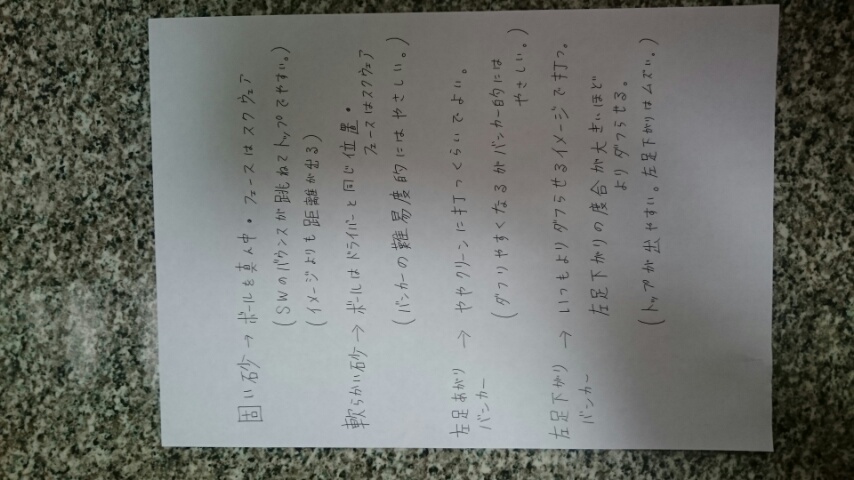 固い砂→ボールを真ん中・フェースはスクウェア
(SWのバウンスが跳ねてトップでやすい。)
(イメージよりも距離が出る)
軟らかい砂→ボールはドライバーと同じ位置・
フェースはスクウェア
(バンカーの難易度的にはやさしい。)
左足あがり → ややクリーンに打つくらいでよい。
バンカー
(ダフりやすくなるがバンカー的には
やさしい。)
左足下がり → いつもよりダフらせるイメージで打つ。
バンカー
左足下がりの度合が大きいほど
よりダフらせる。
(トップが出やすい。左足下がりはムズい。)